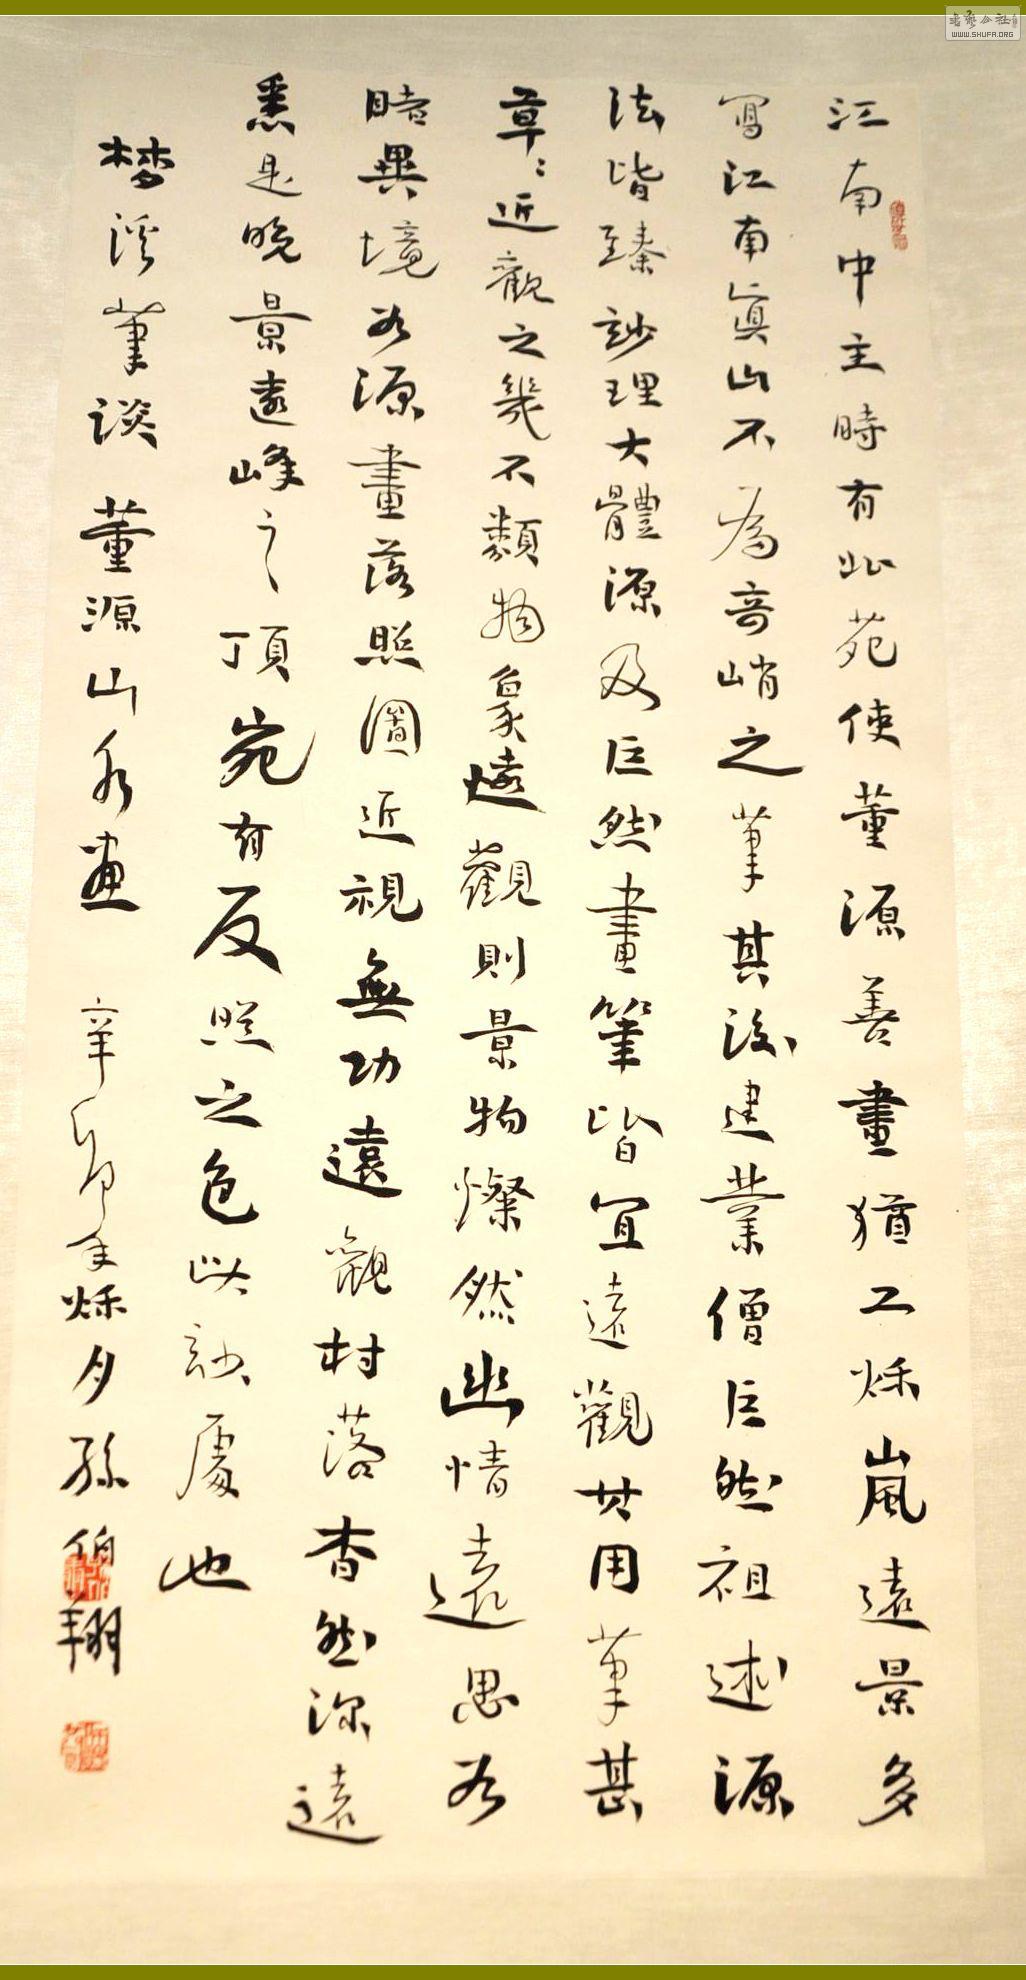 江南中主時有北苑使董源善畫猶工烁嵐遠景多
寫江南真山不為奇峭之筆其後建業僧巨然祖述源
法皆臻妙理大體源及巨然畫筆皆宜遠觀其用筆甚
草々近觀之幾不類物象遠觀則景物燦然幽情遠思如
睹異境如源畫落照圖近視無功遠觀村落杳然深遠
悉是晚景遠峰之頂宛有反照之色此妙處也
梦溪筆談 董源山水畫 辛卯年烁夕孫伯翔
書藝公社
WWW.SHUFA.ORG